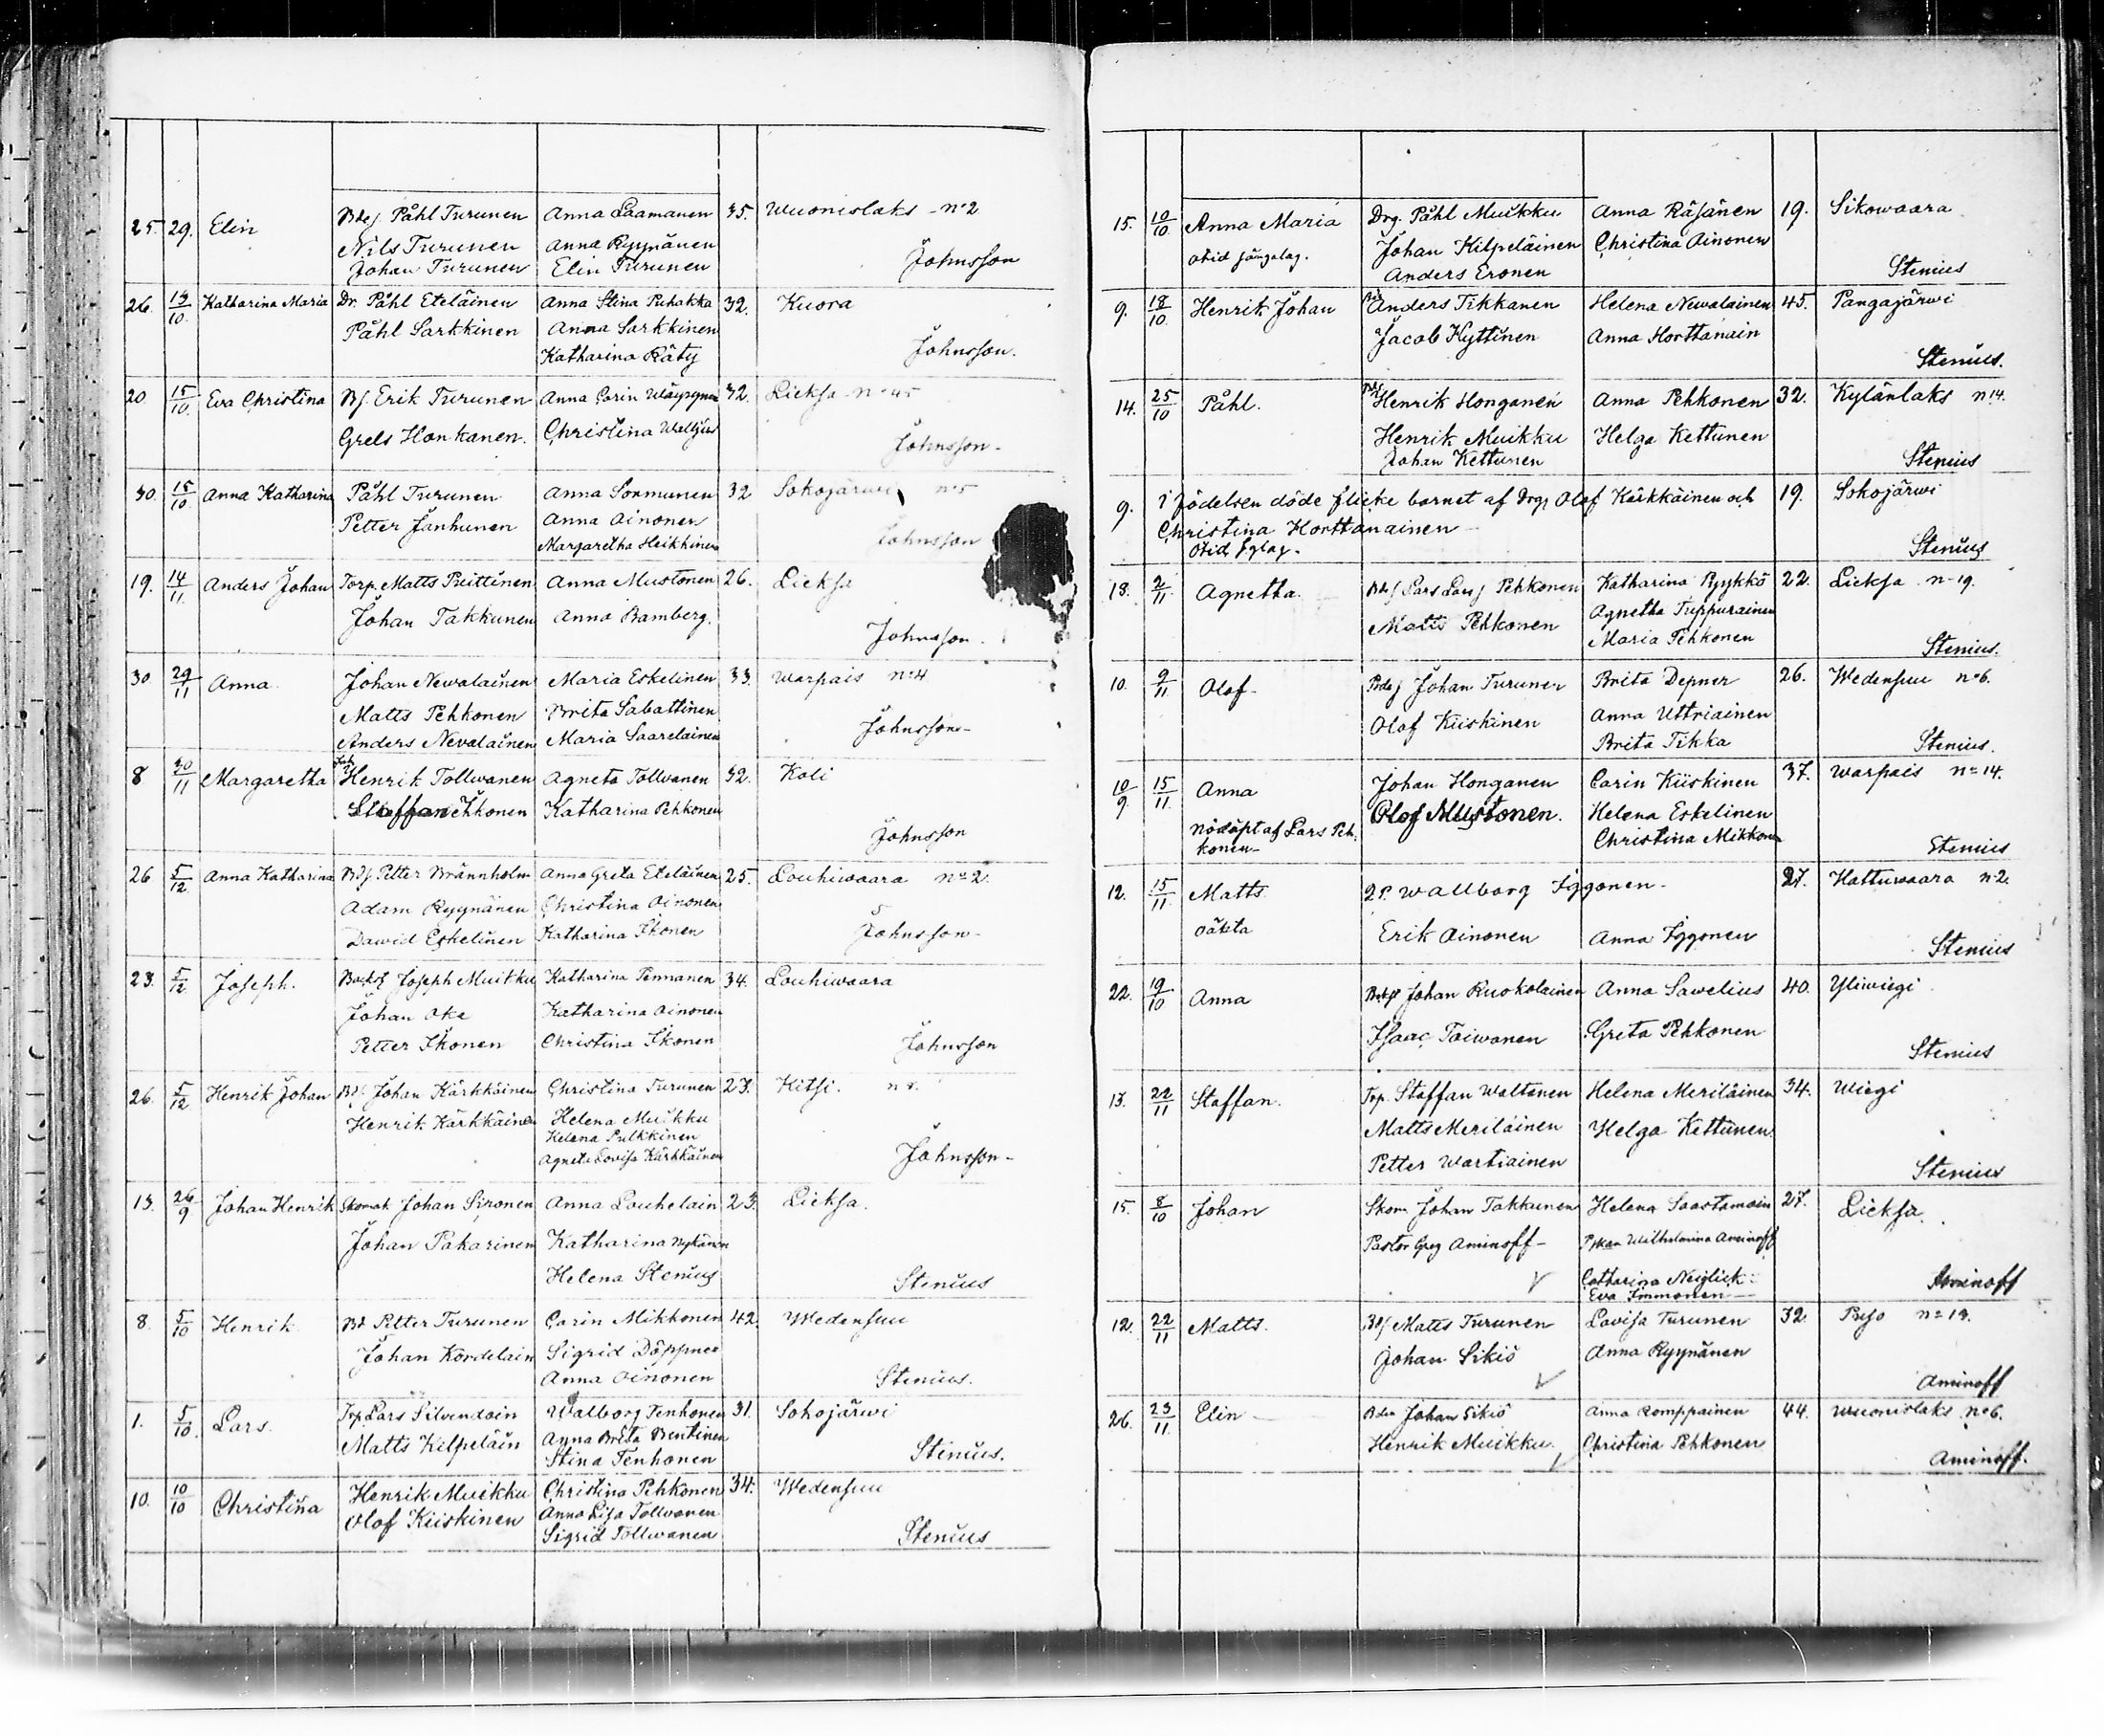 25. 29. Elin Bdes. Påhl Turunen Anna Laamanen 35. Wuonislaks - n:o 2
Nils Turunen Anna Ryynänen
Johan Turunen Elin Turunen Johnsson
26. 14/10. Katharina Maria Dr. Påhl Eteläinen Anna Stina Puhakka 32. Kuora
Påhl Sarkkinen Anna Sarkkinen
Katharina Räty Johnsson.
20 15/10. Eva Christina Bs. Erik Turunen Anna Carin 32. Lieksa n:o 45
Grels Honkanen. Christina Johnsson-
30. 15/10. Anna Katharina Påhl Turunen Anna Sormunen 32 Sokojärwi n:o 5
Petter Janhunen Anna Ainonen
Margaretha Heikkinen Johnsson
19. 14/11. Anders Johan Torp. Matts Puittinen Anna Mustonen 26. Lieksa
Johan Takkunen Anna Bamberg. Johnsson.
30 29/11 Anna. Johan Newalainen Maria Eskelinen 33. Warpais n:o 4
Matts Pehkonen Brita Sabattinen
Anders Nevalainen Maria Saarelainen Johnsson-
8 30/11 Margaretha Henrik Tollwanen Agneta Tollwanen 32. Koli
Staffan Ikkonen Katharina Pehkonen
Johnsson
26 5/12 Anna Katharina Bds. Petter Brännholm Anna Greta Eteläinen 25. Louhiwaara n:o 2.
Adam Ryynänen Christina Oinonen
Dawid Eskelinen Katharina Ikonen Johnsson-
23. 5/12 Joseph. Joseph Muikku Katharina Pennanen 34. Louhiwaara
Johan Oke Katharina Ainonen
Petter Ikonen Christina Ikonen Johnsson
26. 5/12 Henrik Johan Bds. Johan Kärkkäinen Christina Turunen 23. Kitsi. n 8.
Henrik Kärkkäinen Helena Muikku
Helena Pulkkinen
Agneta Lovisa Kärkkäinen Johnsson-
13. 26/9 Johan Henrik Skomak. Johan Sironen Anna Louhelain 23. Lieksa.
Johan Pakarinen Katharina Nykänen
Helena Stenius Stenius
8. 5/10 Henrik Bd Petter Turunen Carin Mikkonen 42. Wedensuu
Johan Kordelain Sigrid Döppner
Anna Oinonen Stenius.
1. 5/10. Lars. Torp Lars Silvendoin Walborg Tenhonen 31. Sokojärwi
Matts Kilpeläin Anna Brita Wentinen
Stina Tenhonen Stenius.
10. 10/10 Christina Henrik Muikku Christina Pehkonen 34. Wedensuu
Olof Kiiskinen Anna Lisa Tollwanen
Sigrid Tollwanen Stenius
15. 10/10. Anna Maria Drg. Påhl Muikku Anna Räsänen 19. Sikowaara
Johan Kilpeläinen Christina Ainonen
Anders Eronen Stenius
9. 18/10. Henrik Johan Anders Tikkanen Helena Newalainen 45. Pangajärwi
Jacob Kyttinen Anna Horttanain
Stenius.
14. 25/10 Påhl. Henrik Honganen Anna Pehkonen 32. Kylänlaks n:o 14.
Henrik Muikku Helga Kettunen
Johan Kettunen Stenius
9. i födelsen döde flicke barnet af Drg Olof Kärkkäinen och 19. Sokojärwi
Christina Horttanainen
Stenius
13. 2/11. Agnetha. Bds Lars Lars Pehkonen Katharina Pyykkö 22. Lieksa n:o 19.
Matts Pehkonen Agnetha Tuppurainen
Maria Pehkonen Stenius.
10. 9/11 Olof- Bdes Johan Turunen Brita Depner 26. Wedensuu n:o 6.
Olof Kiiskinen Anna Uttriainen
Brita Tikka Stenius.
10/9. 15/11. Anna Johan Honganen Carin Kiiskinen 37. Warpais n:o 14.
Olof Mustonen. Helena Eskelinen
nödöpt af Lars Peh- Christina Mikkonen
konen- Stenius
12. 15/11. Matts. Walborg Iggonen- 27. Hattuwaara n:2.
oäkta Erik Ainonen Anna Iggonen
Stenius
22. 19/10 Anna Johan Ruokolainen Anna Sawelius 40. Yliwiegi
Isaac Taiwanen Greta Pehkonen
Stenius
13. 22/11 Staffan. Torp. Staffan Waltonen Helena Meriläinen 34. Wiegi
Matts Meriläinen Helga Kettunen.
Petter Wartiainen Stenius
15. 8/10 Johan Skom. Johan Takkunen Helena Saastamoin 27. Lieksa.
Pastor Greg Aminoff- Wilhelmina Aminoff
Catharina Neiglick
Eva Immonen Aminoff
12. 22/11 Matts. Bds Matts Turunen Lovisa Turunen 32. Puso n:o 13.
Johan Sikiö Anna Ryynänen
Aminoff
26. 23/11. Elin Bden Johan Sikiö Anna Romppainen 44. Wuonislaks n:o 6.
Henrik Muikku Christina Pehkonen
Aminoff.